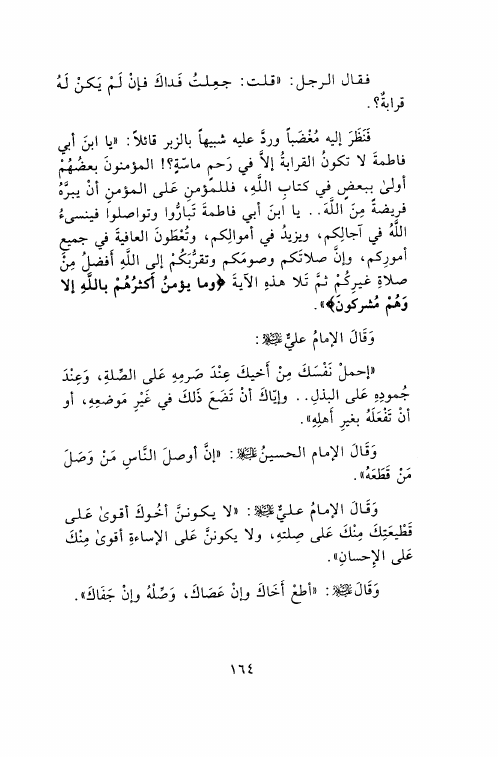 فقال الرجل: «قلت: جعلتُ فَداكَ فإنْ لَمْ يَكنْ لَهُ
قرابةٌ؟.
فَنَظَرَ إليه مُغْضَباً وردَّ عليه شبيهاً بالزبر قائلاً: «يا ابنَ أبي
فاطمةَ لا تكونُ القرابةُ إلاَّ في رَحمٍ ماسّةٍ؟! المؤمنونَ بعضُهُمْ
أولىٰ ببعضٍ في كتابِ اللَّهِ، فللمؤمنِ عَلى المؤمنِ أنْ يبرَّهُ
فريضةٌ مِنَ اللَّهِ.. يا ابنَ أبي فاطمةَ تَبارُّوا وتواصلُوا فينسىءُ
اللَّهُ في آجالِكم، ويزيدُ في أموالِكم، وتُعْطَونَ العافيةَ في جميعِ
أمورِكم، وإنَّ صلاتَكم وصومَكم وتقرُّبَكُمْ إلى اللَّهِ أفضلُ مِنْ
صلاةِ غيرِكُمْ ثمَّ تَلا هذهِ الآيةَ ﴿وما يؤمنُ أكثرُهُمْ باللَّهِ إلا
وَهُمْ مُشركونَ﴾».
وَقَالَ الإمامُ عليٌّ عليه السلام:
«إحملْ نَفْسَكَ مِنْ أخيكَ عِنْدَ صَرمِهِ عَلى الصِّلةِ، وَعِنْدَ
جُمودِهِ عَلى البذلِ.. وإيّاكَ أنْ تَضَعَ ذَلكَ في غَيْرِ مَوضعِهِ، أو
أنْ تَفْعَلَهُ بغيرِ أهلِهِ».
وَقَالَ الإمام الحسينُ عليه السلام: «إنَّ أوصلَ النَّاسِ مَنْ وَصَلَ
مَنْ قَطَعَهُ».
وَقَالَ الإمَامُ عَليٌّ عليه السلام: «لا يكوننَّ أخُوكَ أقوىٰ عَلى
قَطْيعَتِكَ مِنْكَ عَلى صِلتهِ، ولا يكوننَّ عَلى الإساءةِ أقوىٰ مِنْكَ
عَلى الإحسانِ».
وَقَالَ عليه السلام: «أطعْ أَخَاكَ وإنْ عَصَاكَ، وَصِّلْهُ وإنْ جَفَاكَ».
١٦٤